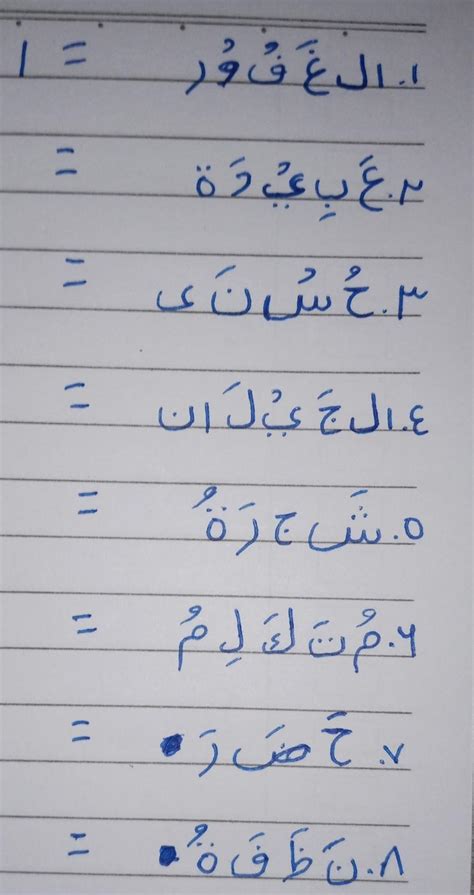 ١. ال غَ فُ وْ ر = ا
٢. عَ بِ يْ دَ ة =
٣. حُ سْ نَ ى =
٤. ال جَ يْ لَ ا ن =
٥. شَ ج رَ ةُ =
٦. مُ تَ كَ لِ مُ =
٧. حَ ضَ رَ =
٨. نَ ظَ فَ ةُ =